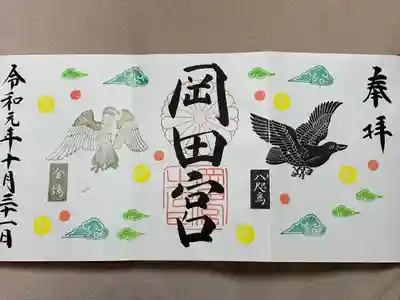 奉拝
八咫烏
岡田宮
金鵄
令和元年十月三十一日